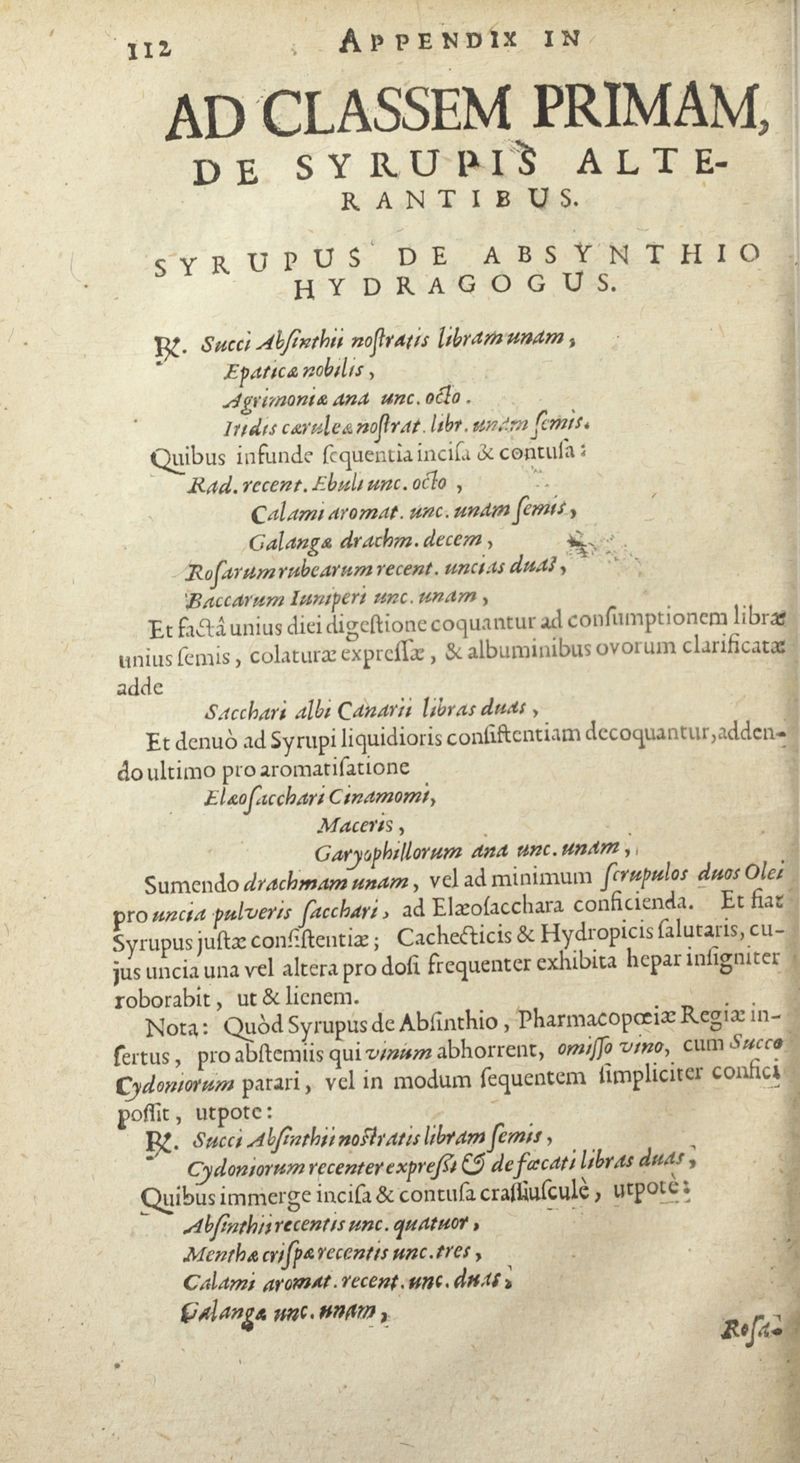 112 APPENDIX IN
AD CLASSEM PRIMAM,
DE SYRUPIS ALTE-
RANTIBUS.
SYRUPUS DE ABSYNTHIO
HYDRAGOGUS.
℞. Succi Abſinthii noſtratis libram unam,
Epaticæ nobilis,
Agrimoniæ ana unc. octo.
Iridis cæruleæ noſtrat. libr. unam ſemis.
Quibus infunde ſequentia inciſa & contuſa:
Rad. recent. Ebuli unc. octo,
Calami aromat. unc. unam ſemis,
Galangæ drachm. decem,
Roſarum rubearum recent. uncias duas,
Baccarum Iuniperi unc. unam,
Et factâ unius diei digeſtione coquantur ad conſumptionem libræ
unius ſemis, colaturæ expreſſæ, & albuminibus ovorum clarificatæ
adde
Sacchari albi Canarii libras duas,
Et denuò ad Syrupi liquidioris conſiſtentiam decoquantur, adden-
do ultimo pro aromatiſatione
Elæoſacchari Cinamomi,
Maceris,
Garyophillorum ana unc. unam,
Sumendo drachmam unam, vel ad minimum ſcrupulos duos Olei
pro uncia pulveris ſacchari, ad Elæoſacchara conficienda. Et fiat
Syrupus juſtæ conſiſtentiæ; Cachecticis & Hydropicis ſalutaris, cu-
jus uncia una vel altera pro doſi frequenter exhibita hepar inſigniter
roborabit, ut & lienem.
Nota: Quòd Syrupus de Abſinthio, Pharmacopœiæ Regiæ in-
ſertus, pro abſtemiis qui vinum abhorrent, omiſſo vino, cum Succo
Cydoniorum parari, vel in modum ſequentem ſimpliciter confici
poſſit, utpote:
℞. Succi Abſinthii noſtratis libram ſemis,
Cydoniorum recenter expreſſi & defœcati libras duas,
Quibus immerge inciſa & contuſa craſſiuſculè, utpote:
Abſinthii recentis unc. quatuor,
Menthæ criſpæ recentis unc. tres,
Calami aromat. recent. unc. duas,
Galangæ unc. unam,
Roſa-